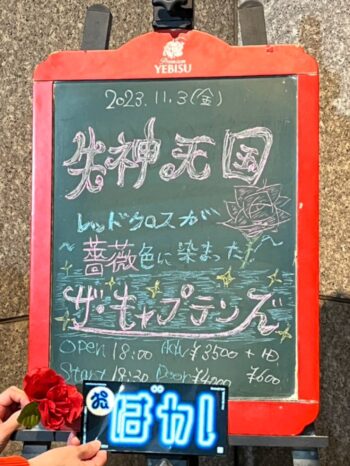 Premium
YEBISU
2023.11.3(金)
失神天国
レッドクロスが
〜薔薇色に染まった〜
ザ・キャプテンズ
Open 18:00 Adv ¥3500 +1D
Start 18:30 Door ¥4000 ¥600
ぼかし